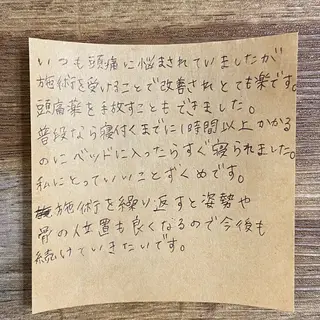 いつも頭痛に悩まされていましたが
施術を受けることで改善されとても楽です。
頭痛薬を手放すこともできました。
普段なら寝付くまでに1時間以上かかる
のにベッドに入ったらすぐ寝られました。
私にとっていいことずくめです。
施術を繰り返すと姿勢や
骨の位置も良くなるので今後も
続けていきたいです。